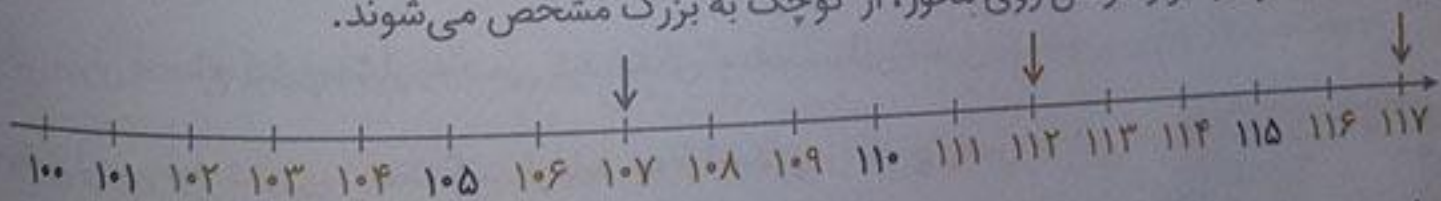 روی محور، از کوچک به بزرگ مشخص می‌شوند.
۱۰۰ ۱۰۱ ۱۰۲ ۱۰۳ ۱۰۴ ۱۰۵ ۱۰۶ ۱۰۷ ۱۰۸ ۱۰۹ ۱۱۰ ۱۱۱ ۱۱۲ ۱۱۳ ۱۱۴ ۱۱۵ ۱۱۶ ۱۱۷